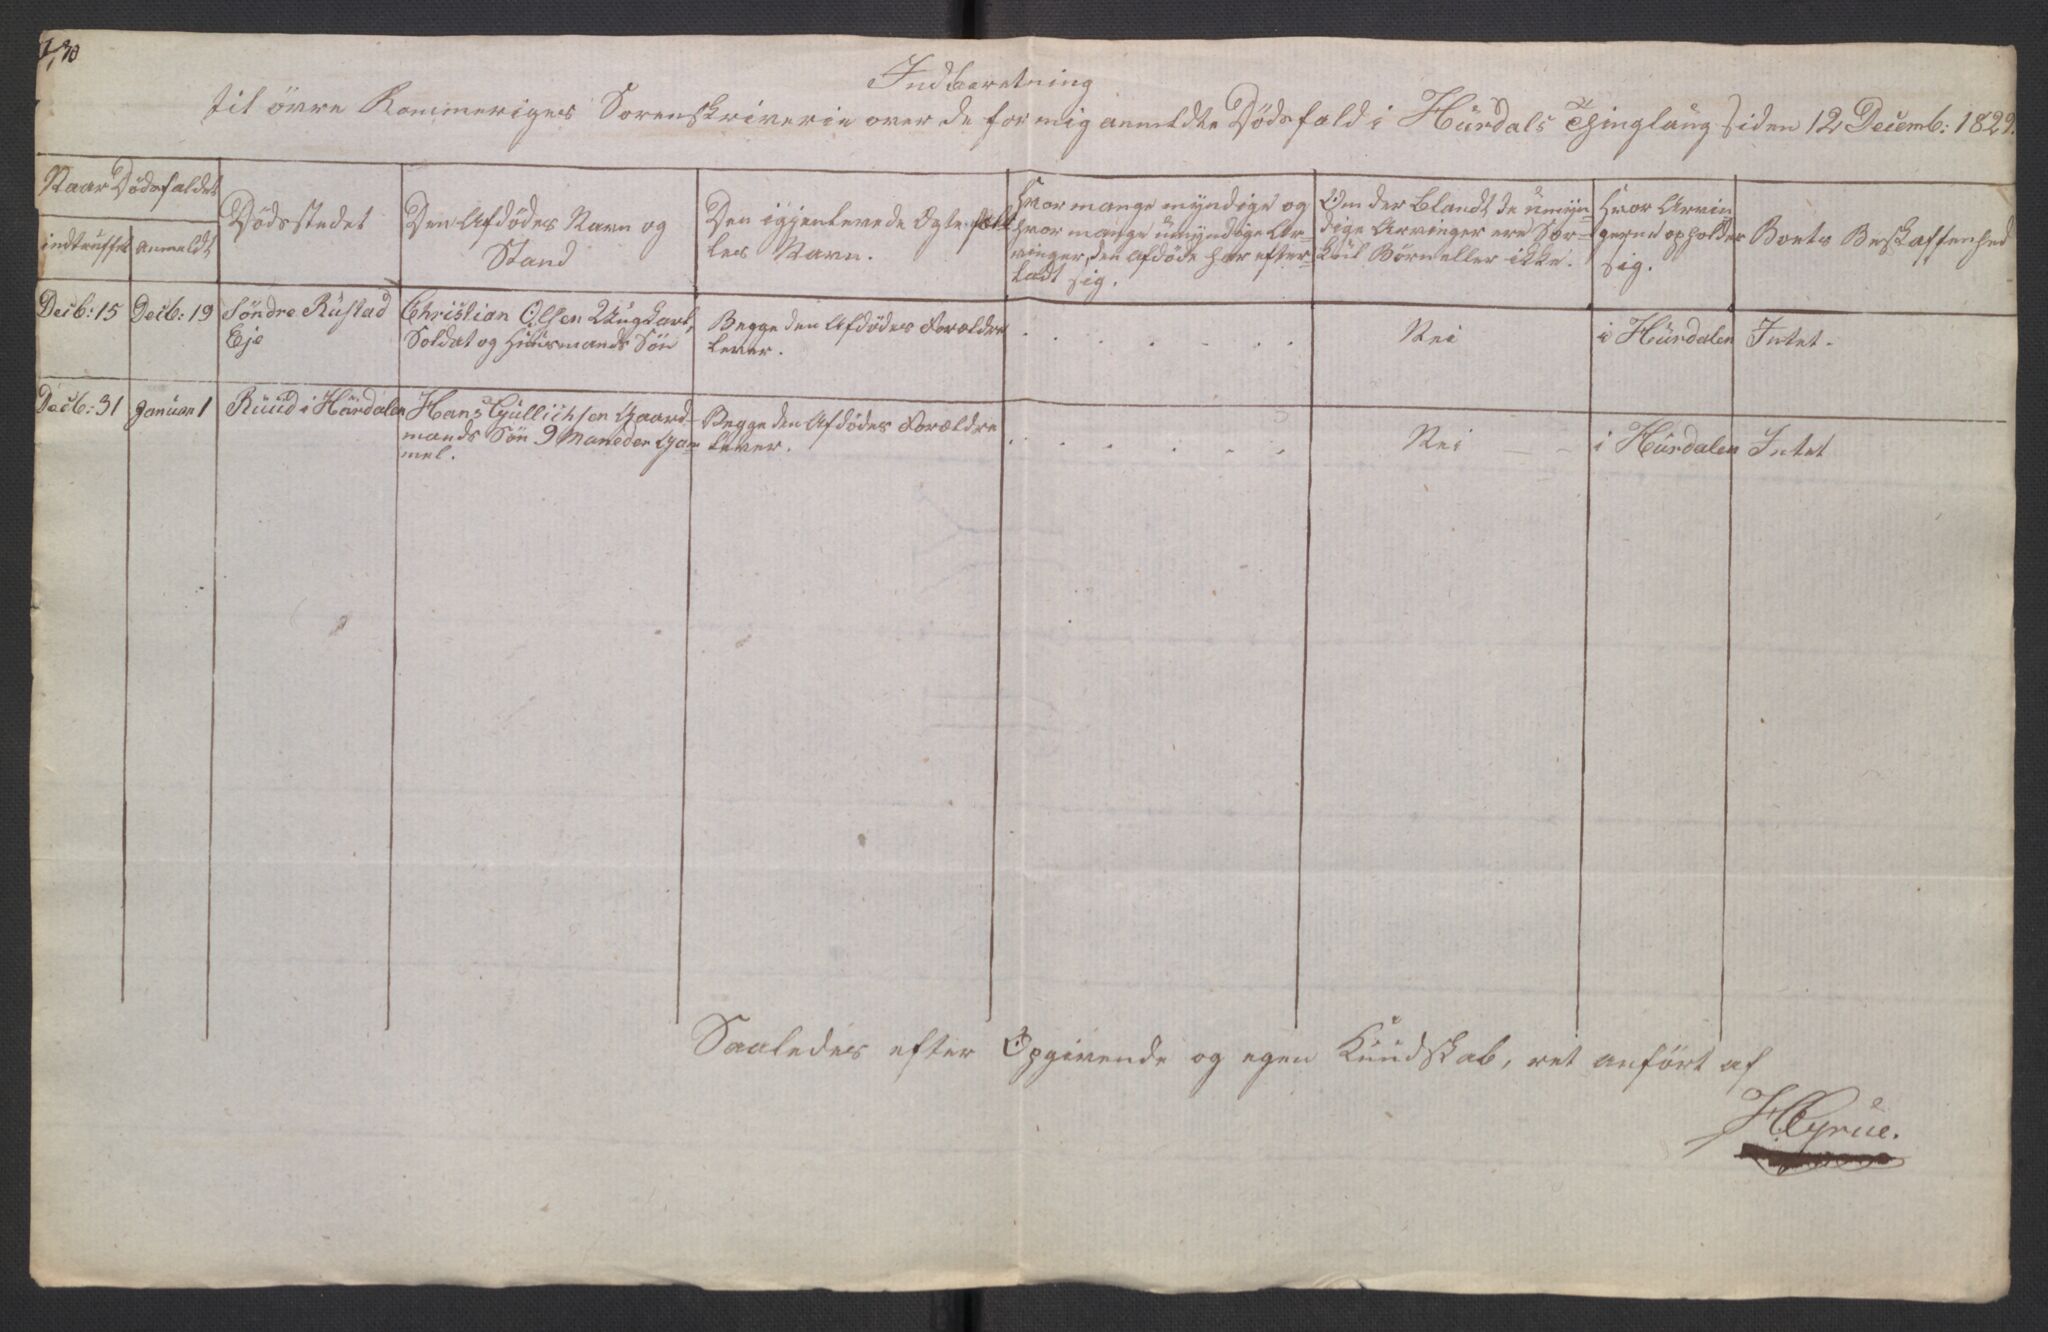 Indberetning
til övre Rommeriges Sorenskriverie over de for mig anmeldte Dödsfald i Hürdals Thinglaug siden 12 Decemb: 1829.
Naar Dödsfaldet
indtruffet
anmeldt
Dödsstedet
Den Afdödes Navn og
Stand
Den igjenlevede Egtefæl-
les Navn.
Hvor mange myndige og
hvor mange umyndige Ar-
vinger, den afdöde har efter-
ladt sig.
Om der blandt de umyn-
dige Arvinger ere Sær-
kül Börn eller ikke.
Hvor Arvin
gerne opholder
sig.
Boets Beskaffenhed
Decb: 15
Decb: 19
Söndre Rüstad
Eje
Christian Olsen Ungkarl,
Soldat og Huusmands Sön
Begge den Afdödes Forældre
lever.
. . . . . . .
Nei
i Hürdalen
Intet.
Decb: 31
Januar 1
Rüüd i Hürdalen
Hans Gullichsen Gaard-
mands Sön 9 Maneder Gam-
mel.
Begge den Afdödes Forældre
lever.
. . . . . . .
Nei
i Hürdalen
Intet
Saaledes efter Opgivende og egen Kundskab, ret anfört af